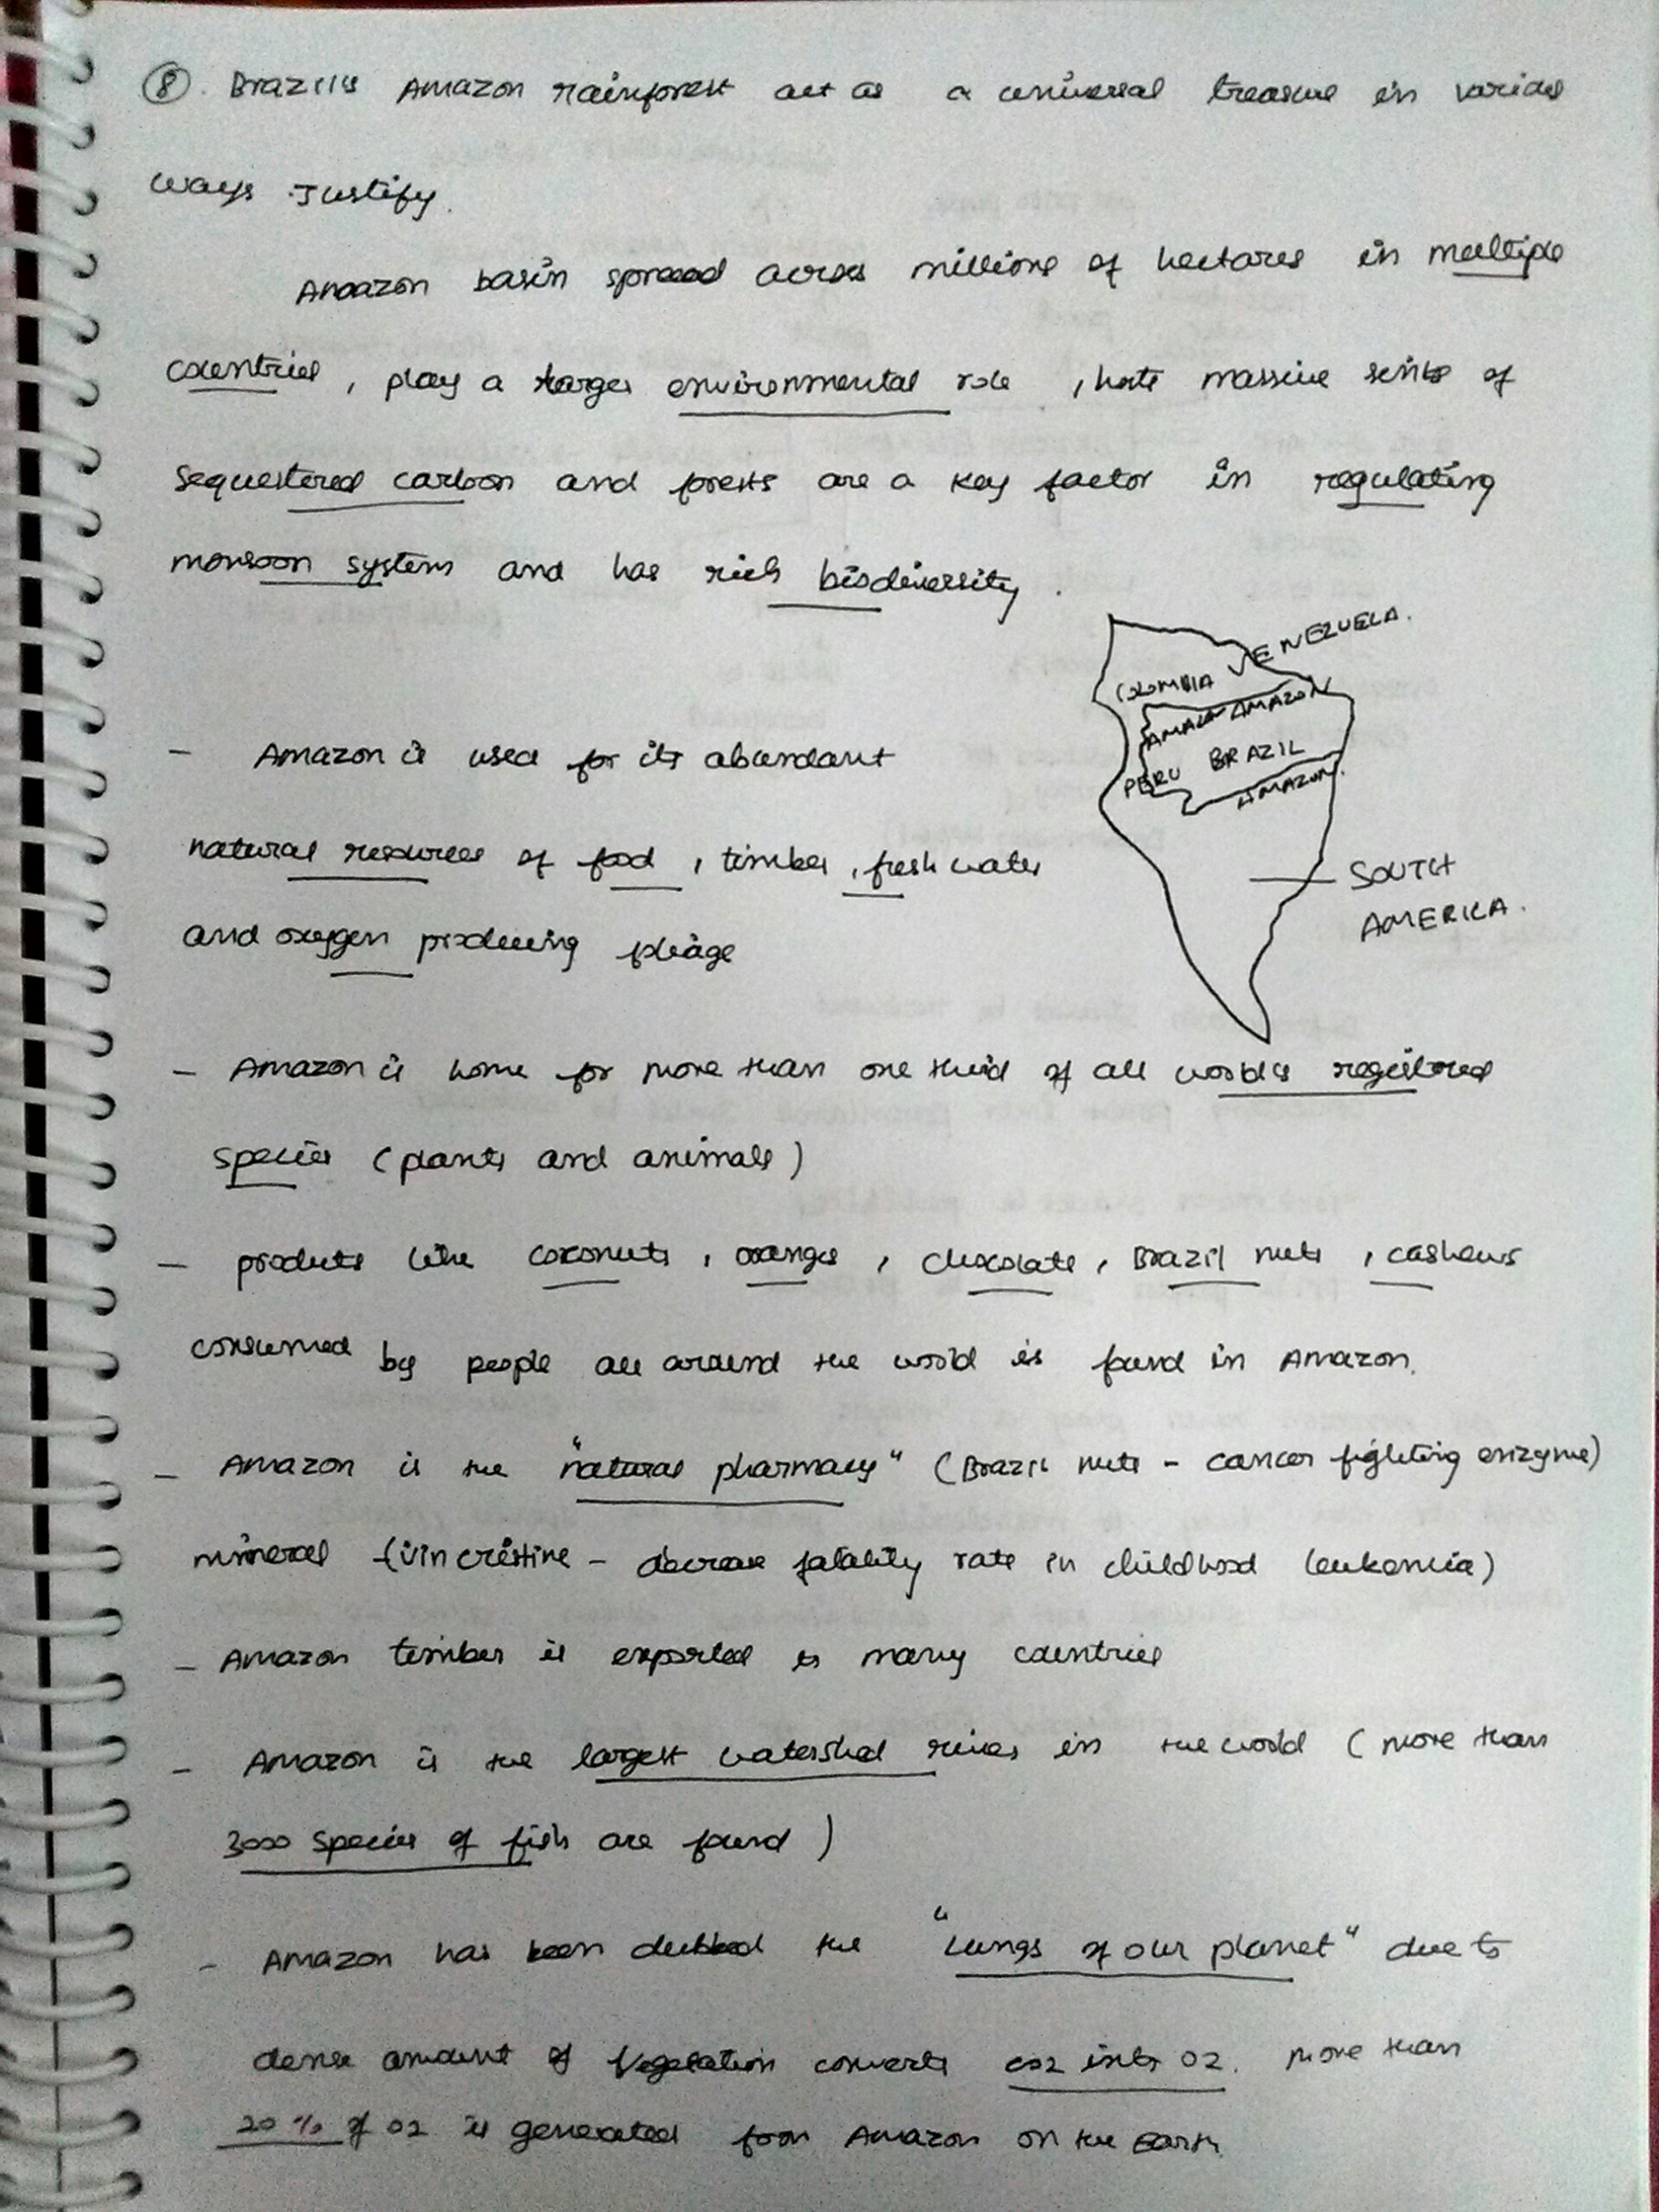 ⑧. Brazil's Amazon rainforest act as a universal treasure in various
ways. Justify.
Amazon basin spread across millions of hectares in multiple
countries, play a larger environmental role, hosts massive sinks of
sequestered carbon and forests are a key factor in regulating
monsoon system and has rich biodiversity.
COLOMBIA VENEZUELA.
AMAZON
PERU BRAZIL
AMAZON.
SOUTH
AMERICA.
- Amazon is used for its abundant
natural resources of food, timber, fresh water
and oxygen producing foliage
- Amazon is home for more than one third of all world's registered
species (plants and animals)
- products like coconuts, oranges, chocolate, Brazil nuts, cashews
consumed by people all around the world is found in Amazon.
- Amazon is the "natural pharmacy" (Brazil nuts - cancer fighting enzyme)
mineral (vincristine - decrease fatality rate in childhood leukemia)
- Amazon timber is exported to many countries
- Amazon is the largest watershed river in the world (more than
3000 species of fish are found)
- Amazon has been dubbed the "Lungs of our planet" due to
dense amount of vegetation converts CO2 into O2. more than
20% of O2 is generated from Amazon on the Earth